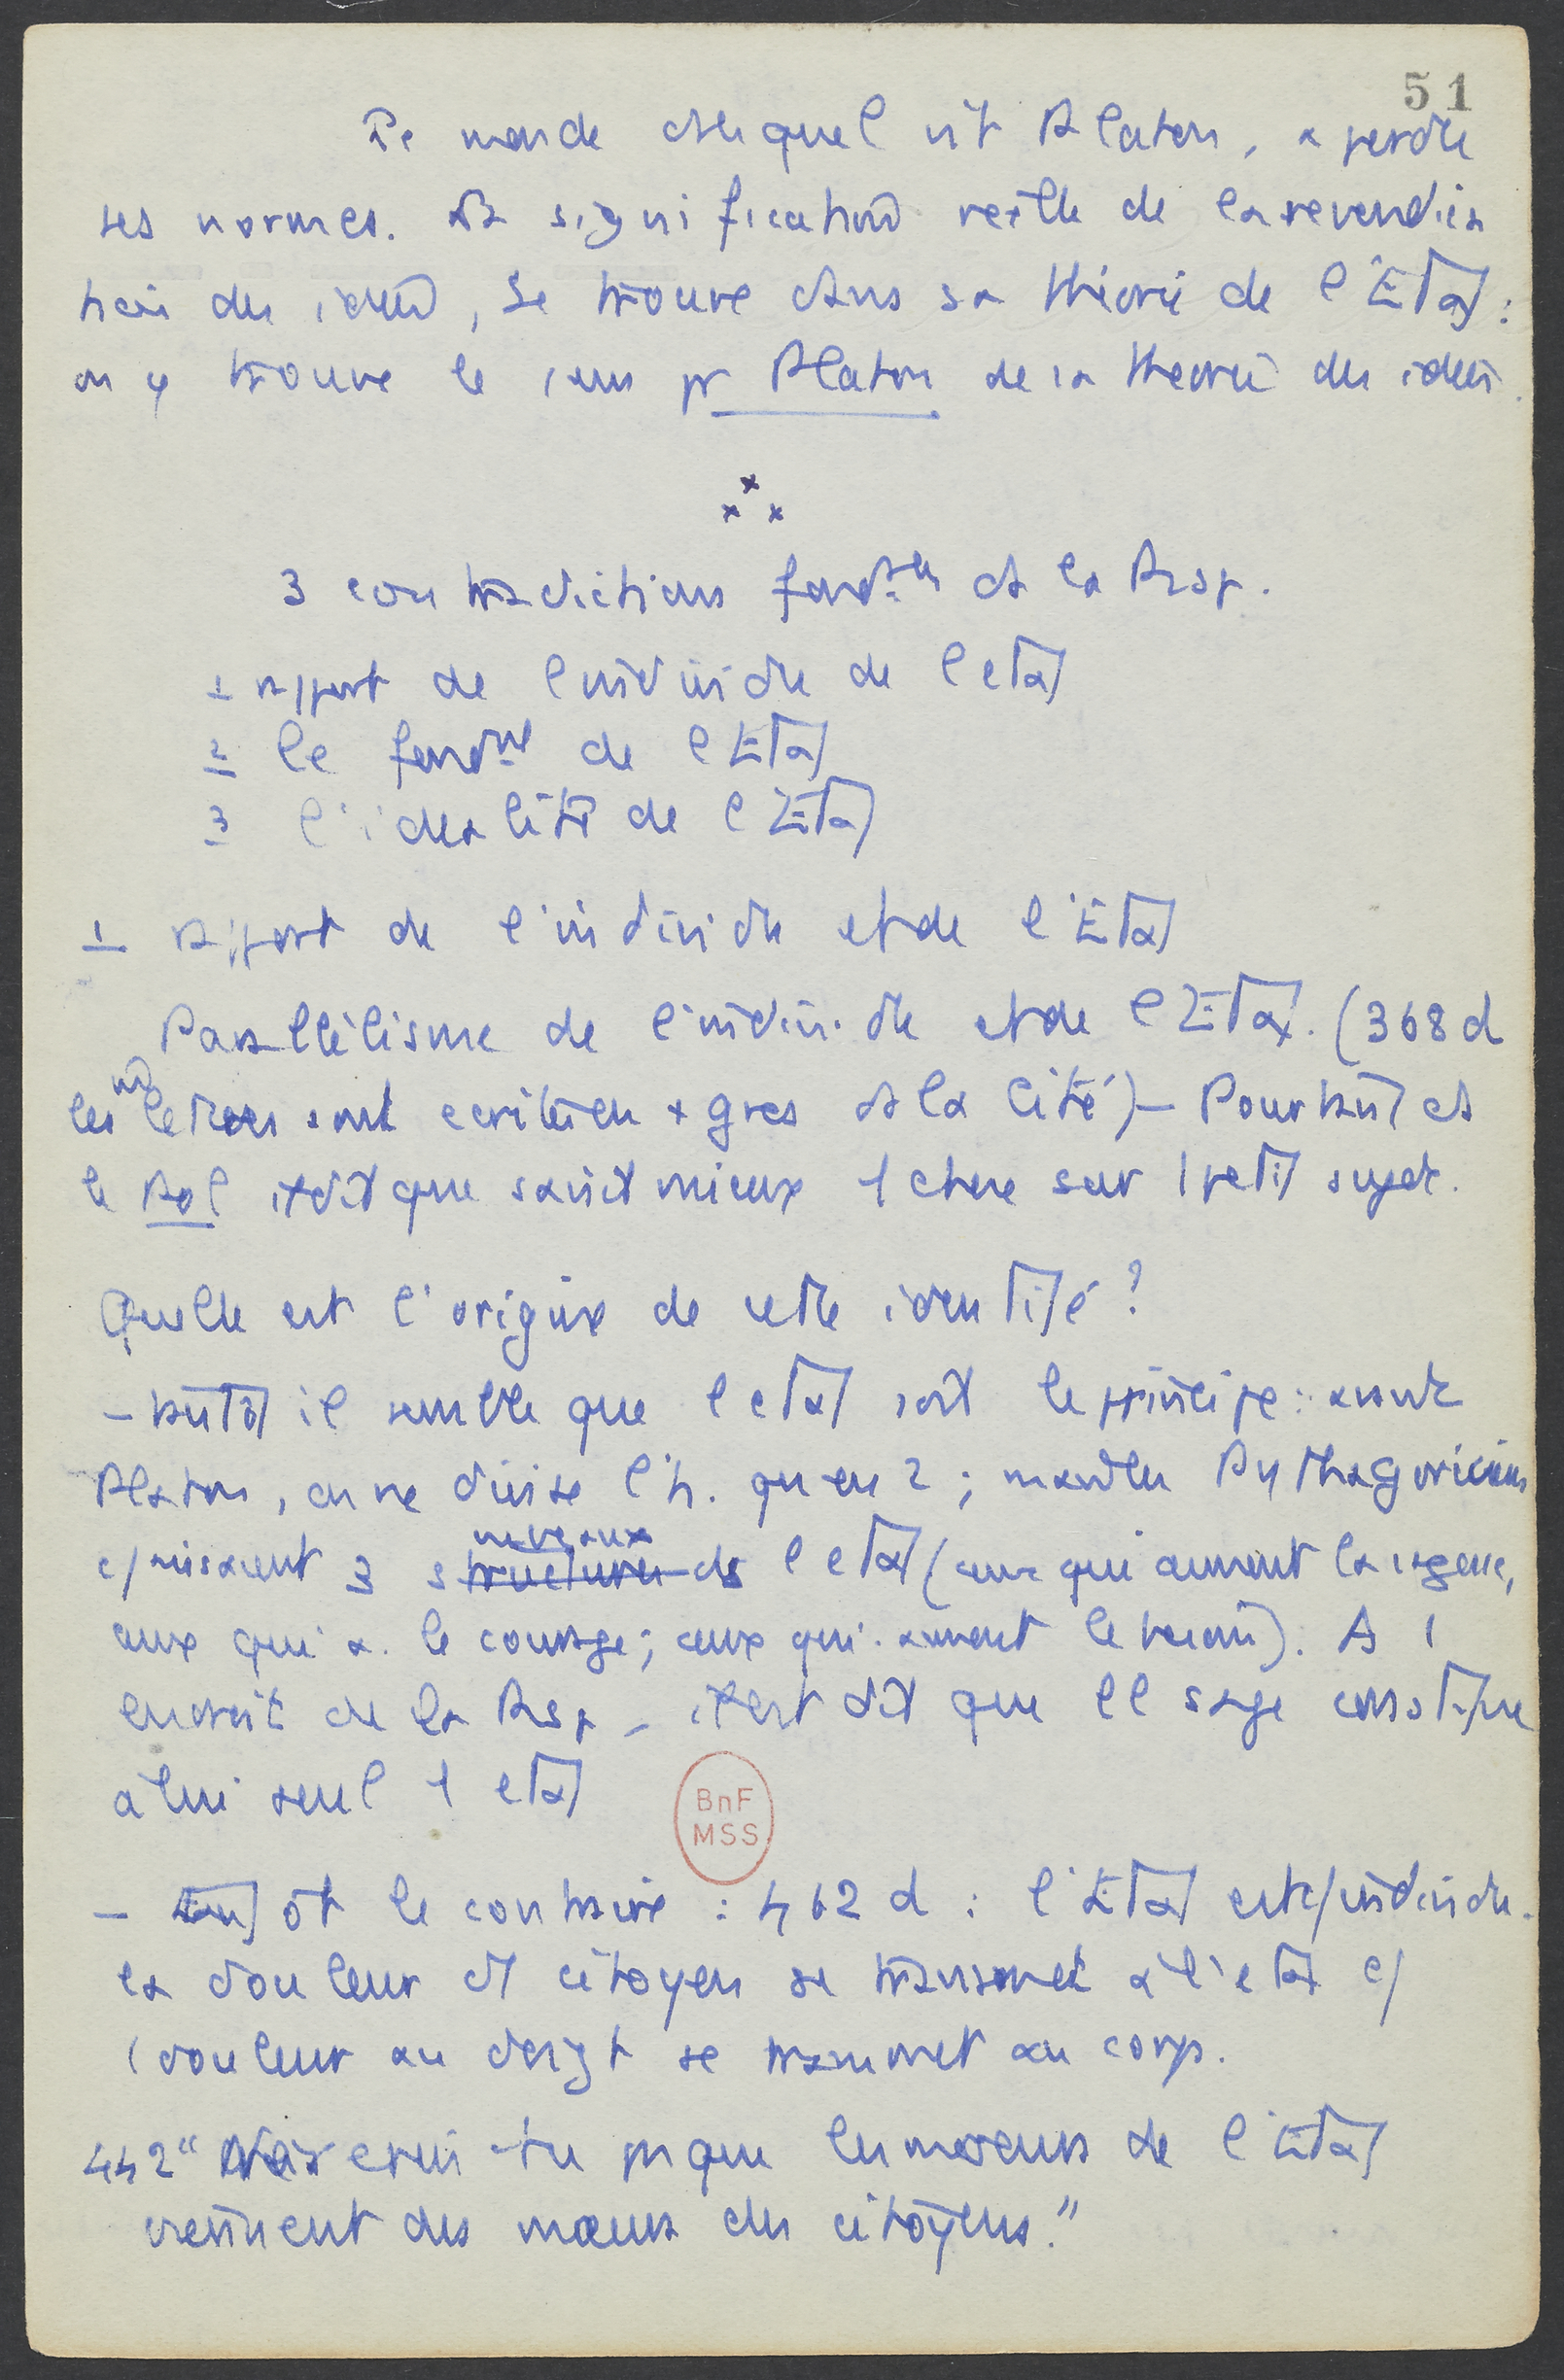 51
Le monde dans lequel vit Platon, a perdu
ses normes. La signification réelle de la revendica
tion des idées, se trouve dans sa théorie de l'État :
on y trouve le sens pr Platon de la théorie des idées.
x x x
3 contradictions fondales ds la Rép.
1 rapport de l'individu de l'état
2 le fondmt de l'État
3 l'idéalité de l'État
1 rapport de l'individu et de l'État
Parallélisme de l'individu et de l'État. (368 d
les lettres sont écrites en + gros ds la cité) – Pourtant ds
le Pol il dit que saisit mieux 1 chose sur 1 petit sujet.
Quelle est l'origine de cette identité ?
– tantôt il semble que l'état soit le principe : avant
Platon, on ne divise l'h. qu'en 2 ; mais les Pythagoriciens
c/naissaient 3 structures niveaux ds l'état (ceux qui aiment la sagesse,
ceux qui a. le courage ; ceux qui aiment le gain). A 1
endroit de la Rép – il est dit que le sage constitue
à lui seul 1 état
BnF
MSS
– tantôt le contraire : 462 d : l'État est c/ individu.
la douleur d'1 citoyen se transmet à l'état c/
1 douleur au doigt se transmet au corps.
442 " crois-tu pas que les moeurs de l'État
viennent des moeurs des citoyens."